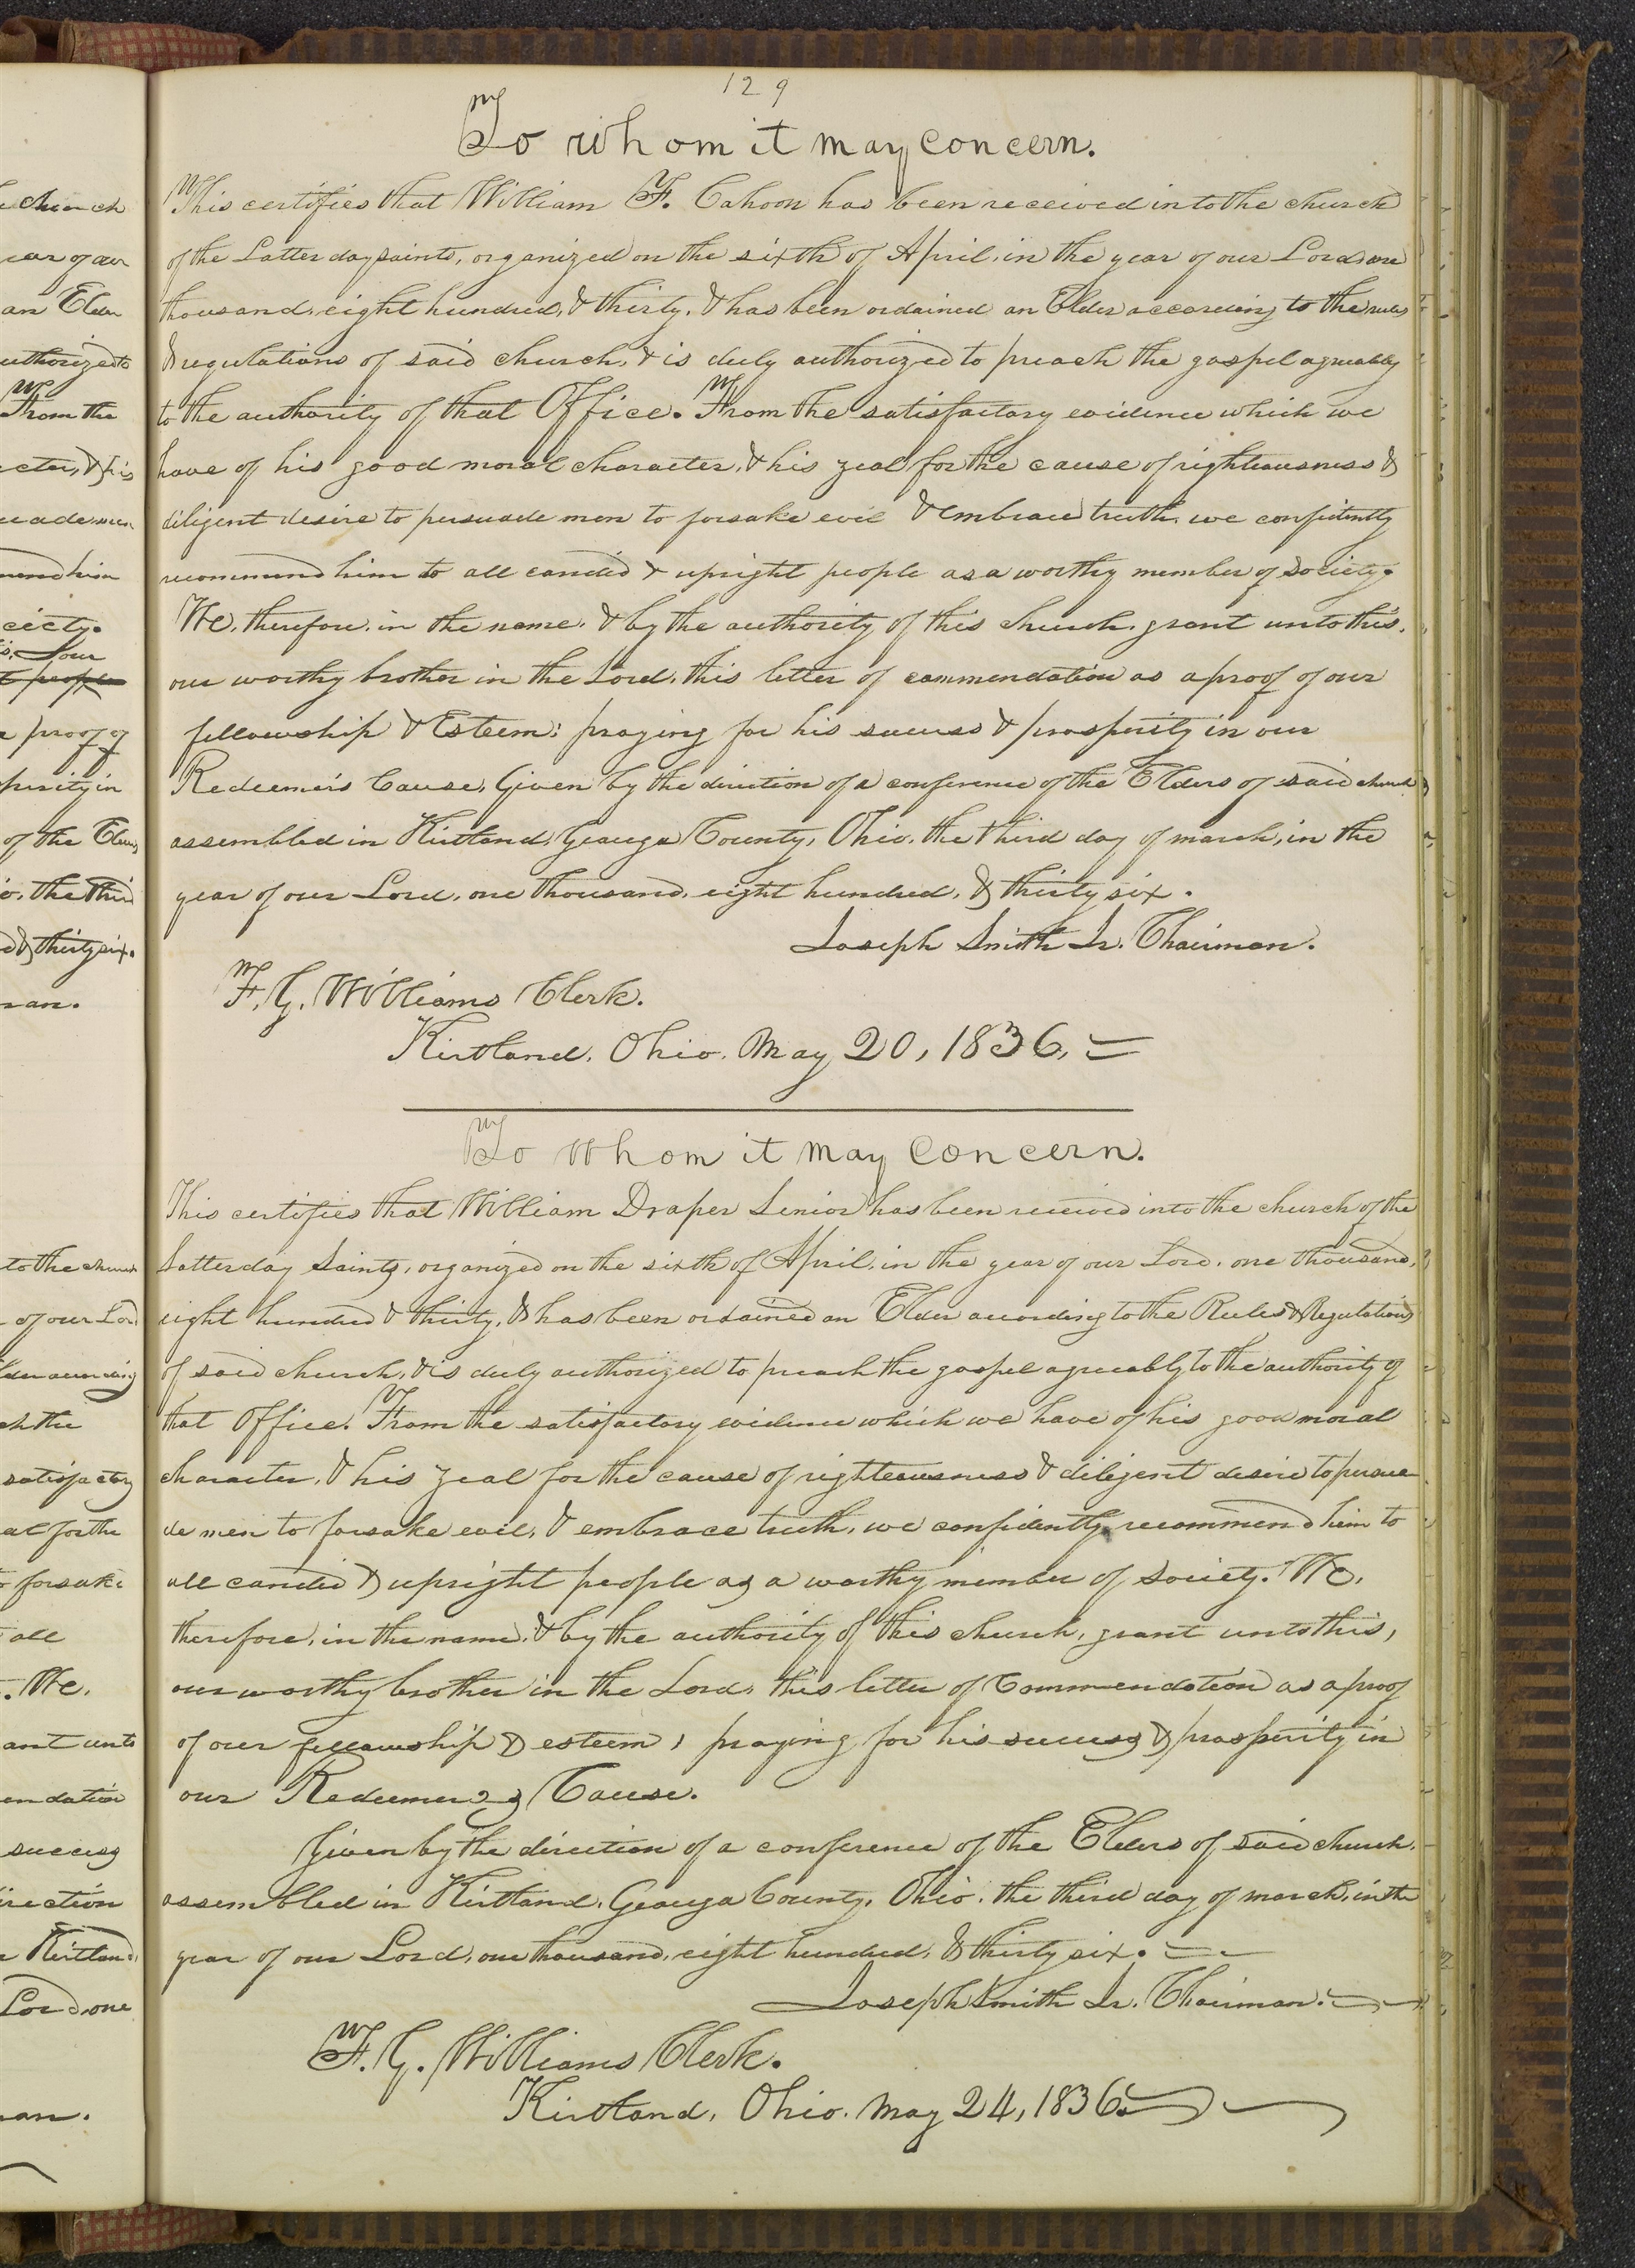 129
To whom it may concern.
This certifies that William F. Cahoon has been received into the church
of the Latter day saints, organized on the sixth of April, in the year of our Lord, one
thousand, eight hundred, & thirty, & has been ordained an Elder according to the rules
& regulations of said church, & is duly authorized to preach the gospel agreeably
to the authority of that Office. From the satisfactory evidence which we
have of his good moral character, & his zeal for the cause of righteousness &
diligent desire to persuade men to forsake evil & embrace truth, we confidently
recommend him to all candid & upright people as a worthy member of society.
We, therefore, in the name, & by the authority of this church, grant unto this,
our worthy brother in the Lord, this letter of commendation as a proof of our
fellowship & Esteem: praying for his success & prosperity in our
Redeemer's Cause, Given by the direction of a conference of the Elders of said church
assembled in Kirtland, Geauga County, Ohio, the third day of march, in the
year of our Lord, one thousand, eight hundred, & thirty six.
Joseph Smith Jr. Chairman.
F. G. Williams Clerk.
Kirtland, Ohio, May 20, 1836,
To whom it may concern.
This certifies that William Draper Senior has been received into the church of the
Latter day Saints, organized on the sixth of April, in the year of our Lord, one thousand,
eight hundred & thirty, & has been ordained an Elder according to the Rules & Regulations
of said church, & is duly authorized to preach the gospel agreeably to the authority of
that Office. From the satisfactory evidence which we have of his good moral
character, & his zeal for the cause of righteousness & diligent desire to persua
de men to forsake evil, & embrace truth, we confidently recommend him to
all candid & upright people as a worthy member of society. We,
therefore, in the name, & by the authority of this church, grant unto this,
our worthy brother in the Lord, this letter of Commendation as a proof
of our fellowship & esteem, praying for his success & prosperity in
our Redeemer's Cause.
Given by the direction of a conference of the Elders of said church,
assembled in Kirtland, Geauga County, Ohio, the third day of march, in the
year of our Lord, one thousand, eight hundred, & thirty six.
Joseph Smith Jr. Chairman.
F. G. Williams Clerk.
Kirtland, Ohio, May 24, 1836.